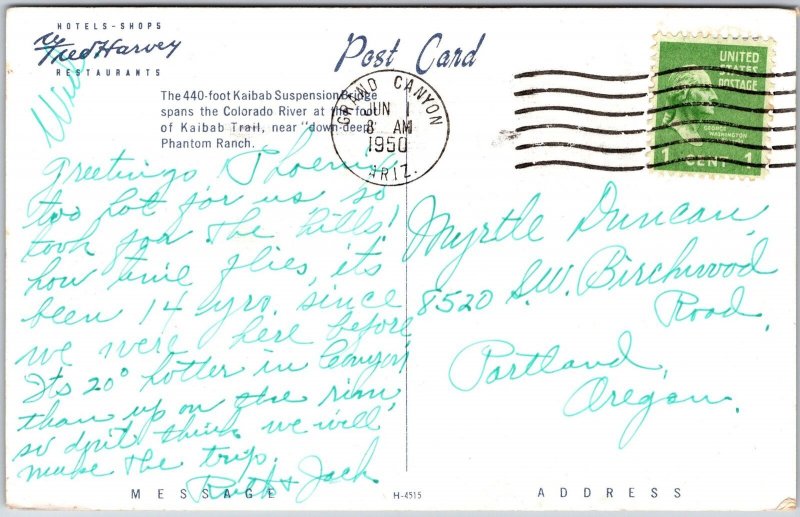 HOTELS - SHOPS
Fred Harvey
RESTAURANTS
Post Card
The 440-foot Kaibab Suspension Bridge
spans the Colorado River at the foot
of Kaibab Trail, near "down-deep"
Phantom Ranch.
GRAND CANYON
JUN 1
8 AM
1950
ARIZ.
UNITED
STATES
POSTAGE
GEORGE
WASHINGTON
1 CENT 1
Wed
Greetings Phoenix
too hot for us so
took for the hills!
how time flies, its
been 14 yrs. since
we were here before
Its 20° hotter in Canyon
than up on the rim,
so don't think we will
make the trip.
Ruth & Jack
Myrtle Duncan,
8520 S.W. Birchwood
Road,
Portland,
Oregon.
MESSAGE
H-4515
ADDRESS